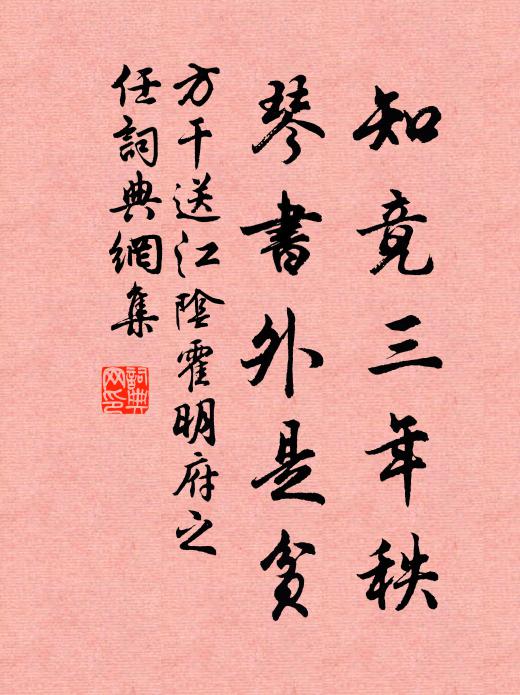 知竟三年秩
琴書外是貧
方干送江陰霍明府之
任詞典網集
詞典
网印